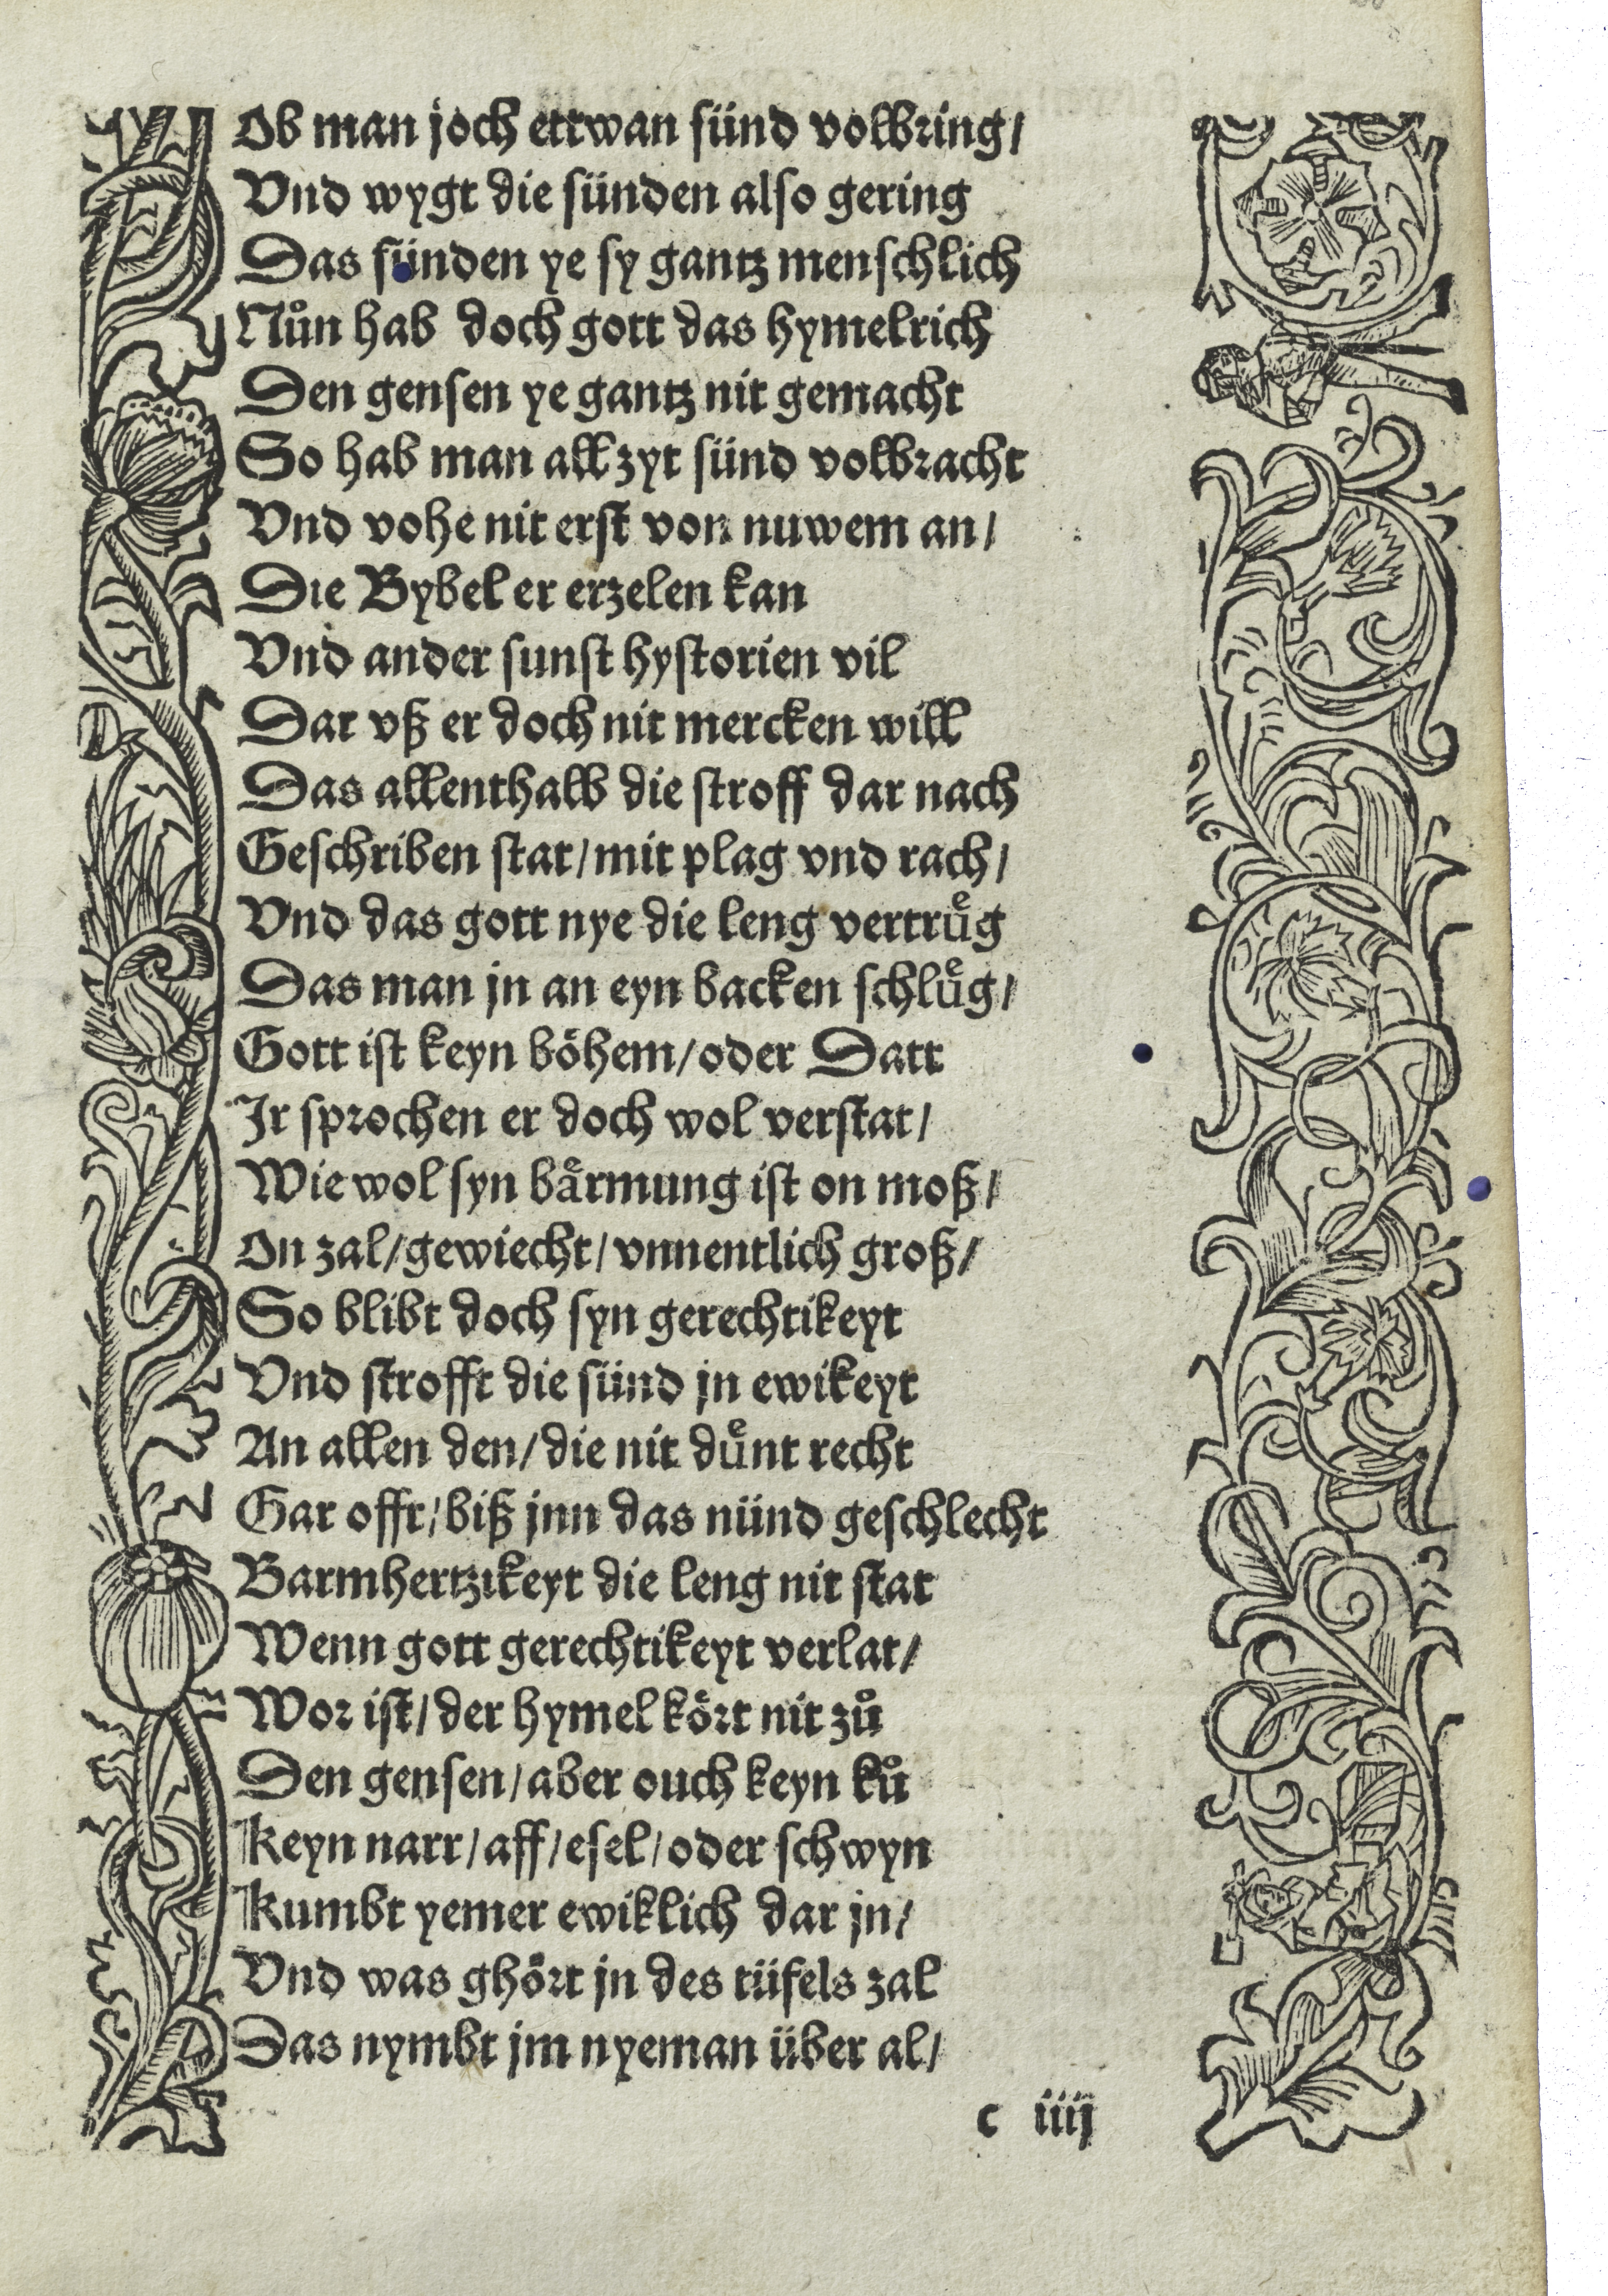 Ob man joch ettwan sünd volbring/
Vnd wygt die sünden also gering
Das sünden ye sy gantz menschlich
Nůn hab doch gott das hymelrich
Den gensen ye gantz nit gemacht
So hab man all zyt sünd volbracht
Vnd vohe nit erst von nuwem an/
Die Bybel er erzelen kan
Vnd ander sunst hystorien vil
Dar vß er doch nit mercken will
Das allenthalb die stroff dar nach
Geschriben stat/mit plag vnd rach/
Vnd das gott nye die leng vertruͤg
Das man jn an eyn backen schluͤg/
Gott ist keyn böhem/oder Datt
Jr sprochen er doch wol verstat/
Wie wol syn bärmung ist on moß/
On zal/gewiecht/vnnentlich groß/
So blibt doch syn gerechtikeyt
Vnd strofft die sünd jn ewikeyt
An allen den/die nit duͤnt recht
Gar offt/biß jnn das nünd geschlecht
Barmhertzikeyt die leng nit stat
Wenn gott gerechtikeyt verlat/
Wor ist/der hymel kört nit zů
Den gensen/aber ouch keyn ků
Keyn narr/aff/esel/oder schwyn
Kumbt yemer ewiklich dar jn/
Vnd was ghört jn des tüfels zal
Das nymbt jm nyeman über al/
c iiij